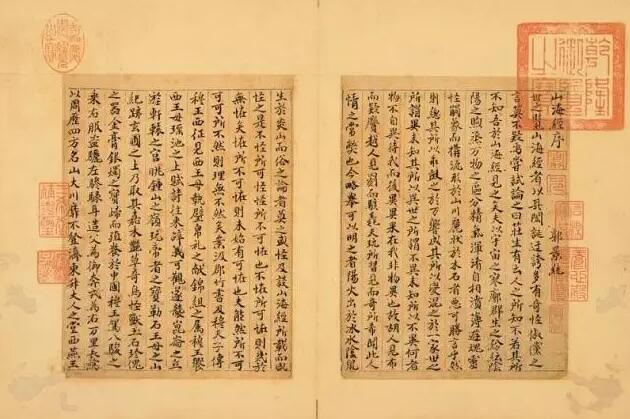 山海經序 郭景純
世之覽山海經者以其閎誕迂誇多有奇怪俶儻之
言莫不疑焉嘗試論之曰莊生有云人之所知不若其所
不知吾於山海經見之矣夫以宇宙之寥廓群生之紛紜陰
陽之煦蒸万物之區分精氣渾淆自相濆薄遊魂靈
性觸象而構流形於山川麗狀於木石者惡可勝言乎然
則總其所以乖鼓之於万響成其所以變混之於一家世之
所謂異未知其所以異世之所謂不異未知所以不異何者
物不自異待我而後異異果在我非物異也故胡人見布
而疑黂越人見罽而駭毳夫玩所習見而奇所希聞此人
情之常蔽也今略舉可以明之者陽火出於冰水陰鼠
生於炎山而俗之論者莫之或怪及談山海經所載而咸
怪之是不怪所可怪怪所不可怪也不怪所可怪則幾於
無怪矣怪所不可怪則未始有可怪也夫能然所不可
可所不可然則理無不然矣案汲郡竹書及穆天子傳
穆王西征見西王母執璧帛之獻錦組之属穆王饗
西王母瑤池之上賦詩往來辞義可觀遂襲崑崙之丘
遊軒轅之宮眺鍾山之嶺玩帝者之寶勒石王母之山
紀跡玄圃之上乃取其嘉木艷草奇鳥怪獸玉石珍瑰
之器金膏銀燭之寶歸而殖養於中國穆王駕八駿之
乘右服盜驪左驂騄耳造父為御奔戎為右万里長驅
以周歷四方名山大川靡不登濟東升大人之堂西燕王